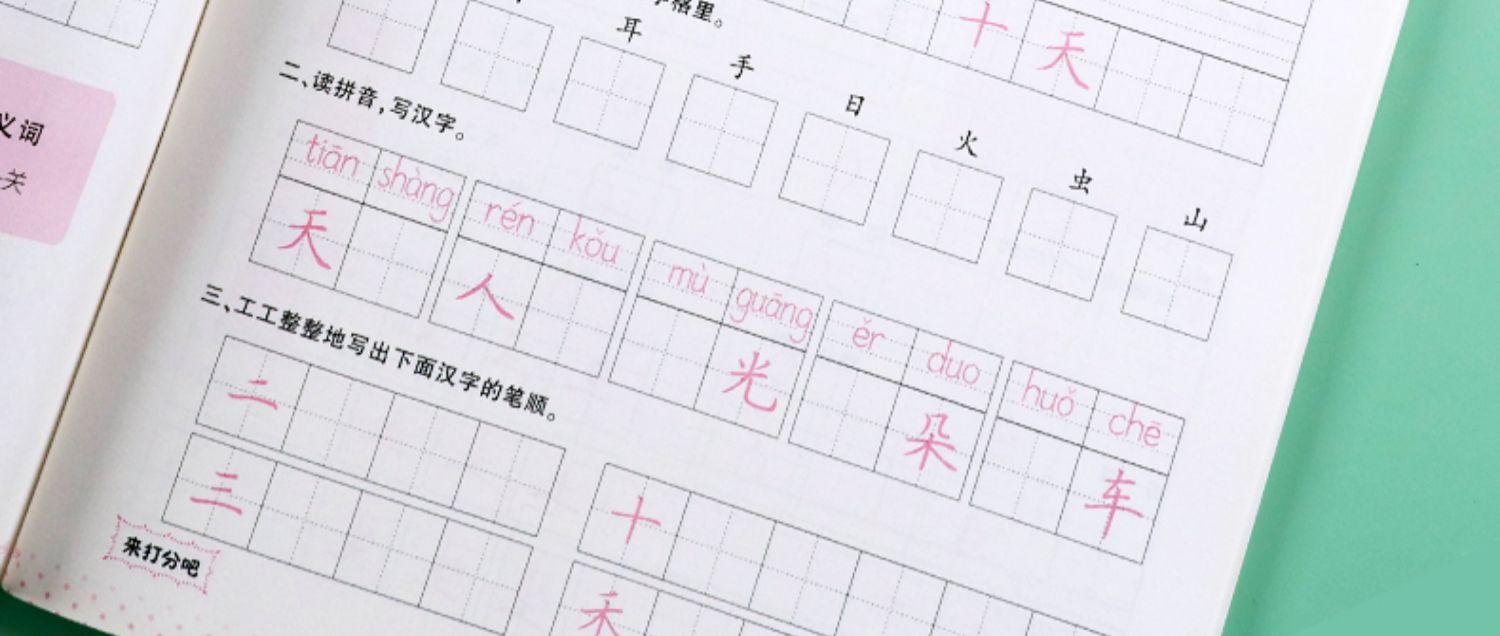 格里。
十 天
耳 手 日 火 虫 山
义词
关
二、读拼音，写汉字。
tiān shàng rén kǒu mù guāng ěr duo huǒ chē
天 人 光 朵 车
三、工工整整地写出下面汉字的笔顺。
二 十
三 禾
来打分吧